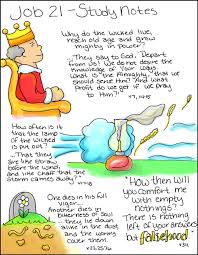 Job 21 - Study Notes
Why do the wicked live,
reach old age and grow
mighty in Power?
"They say to God, 'Depart
from us! We do not desire the
knowledge of Your ways.
What is the Almighty, that we
should serve Him? And what
Profit do we get if we pray
to Him?'"
v7, 14-15
How often is it
that the lamp of
the wicked is
put out?
"...That they
are like straw
before the wind,
and like chaff that the
storm carries away?"
One dies in his full
vigor...
Another dies in
bitterness of Soul
... they lie down
alike in the dust
and the worms
cover them.
v23,25,26
"How then will
you comfort me
with empty
nothings?
There is nothing
left of your answers
but falsehood"
v34